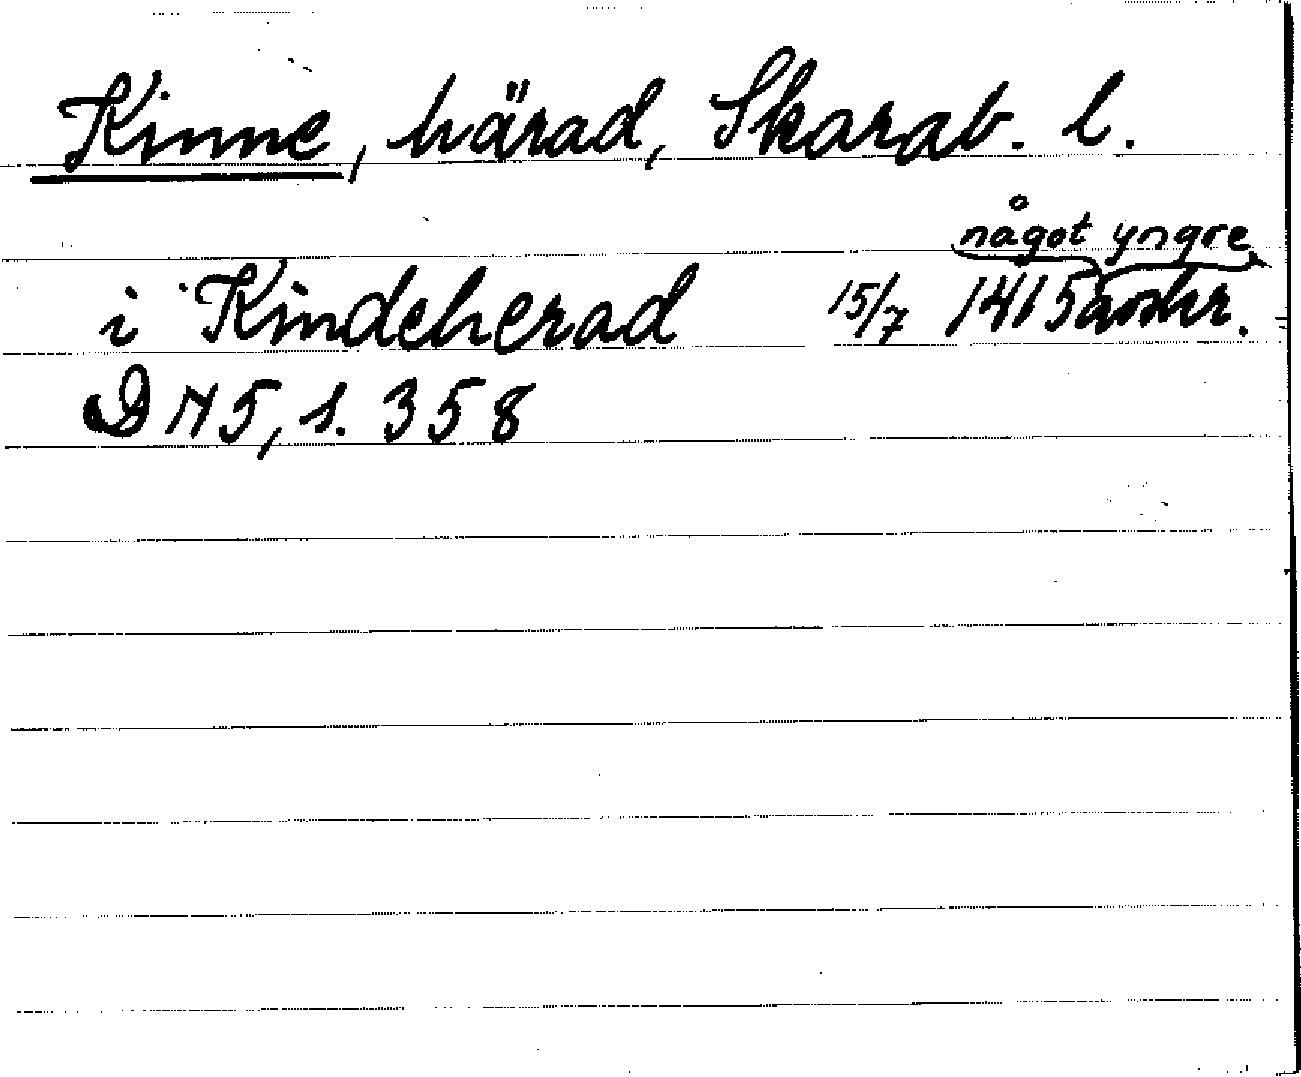 Kinne, härad, Skarab. l.
något yngre
i Kindeherad 15/7 1415 avskr.
DN 5, s. 358